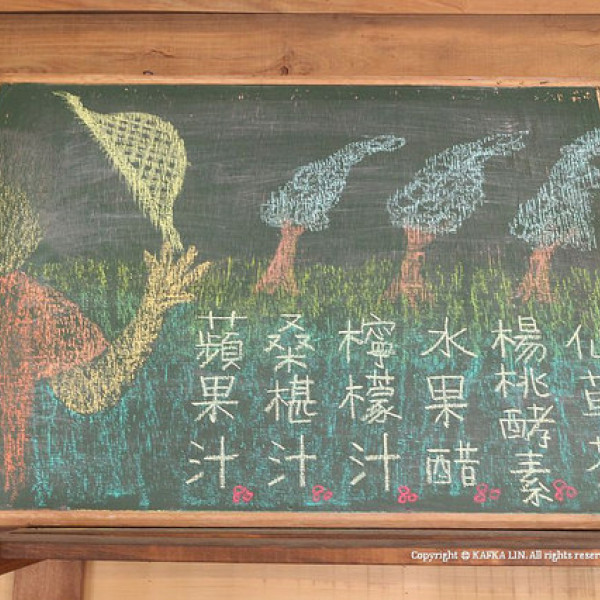 蘋果汁 80
桑椹汁 80
檸檬汁 80
水果醋 80
楊桃酵素 80
仙草
Copyright © KAFKA LIN. All rights reser